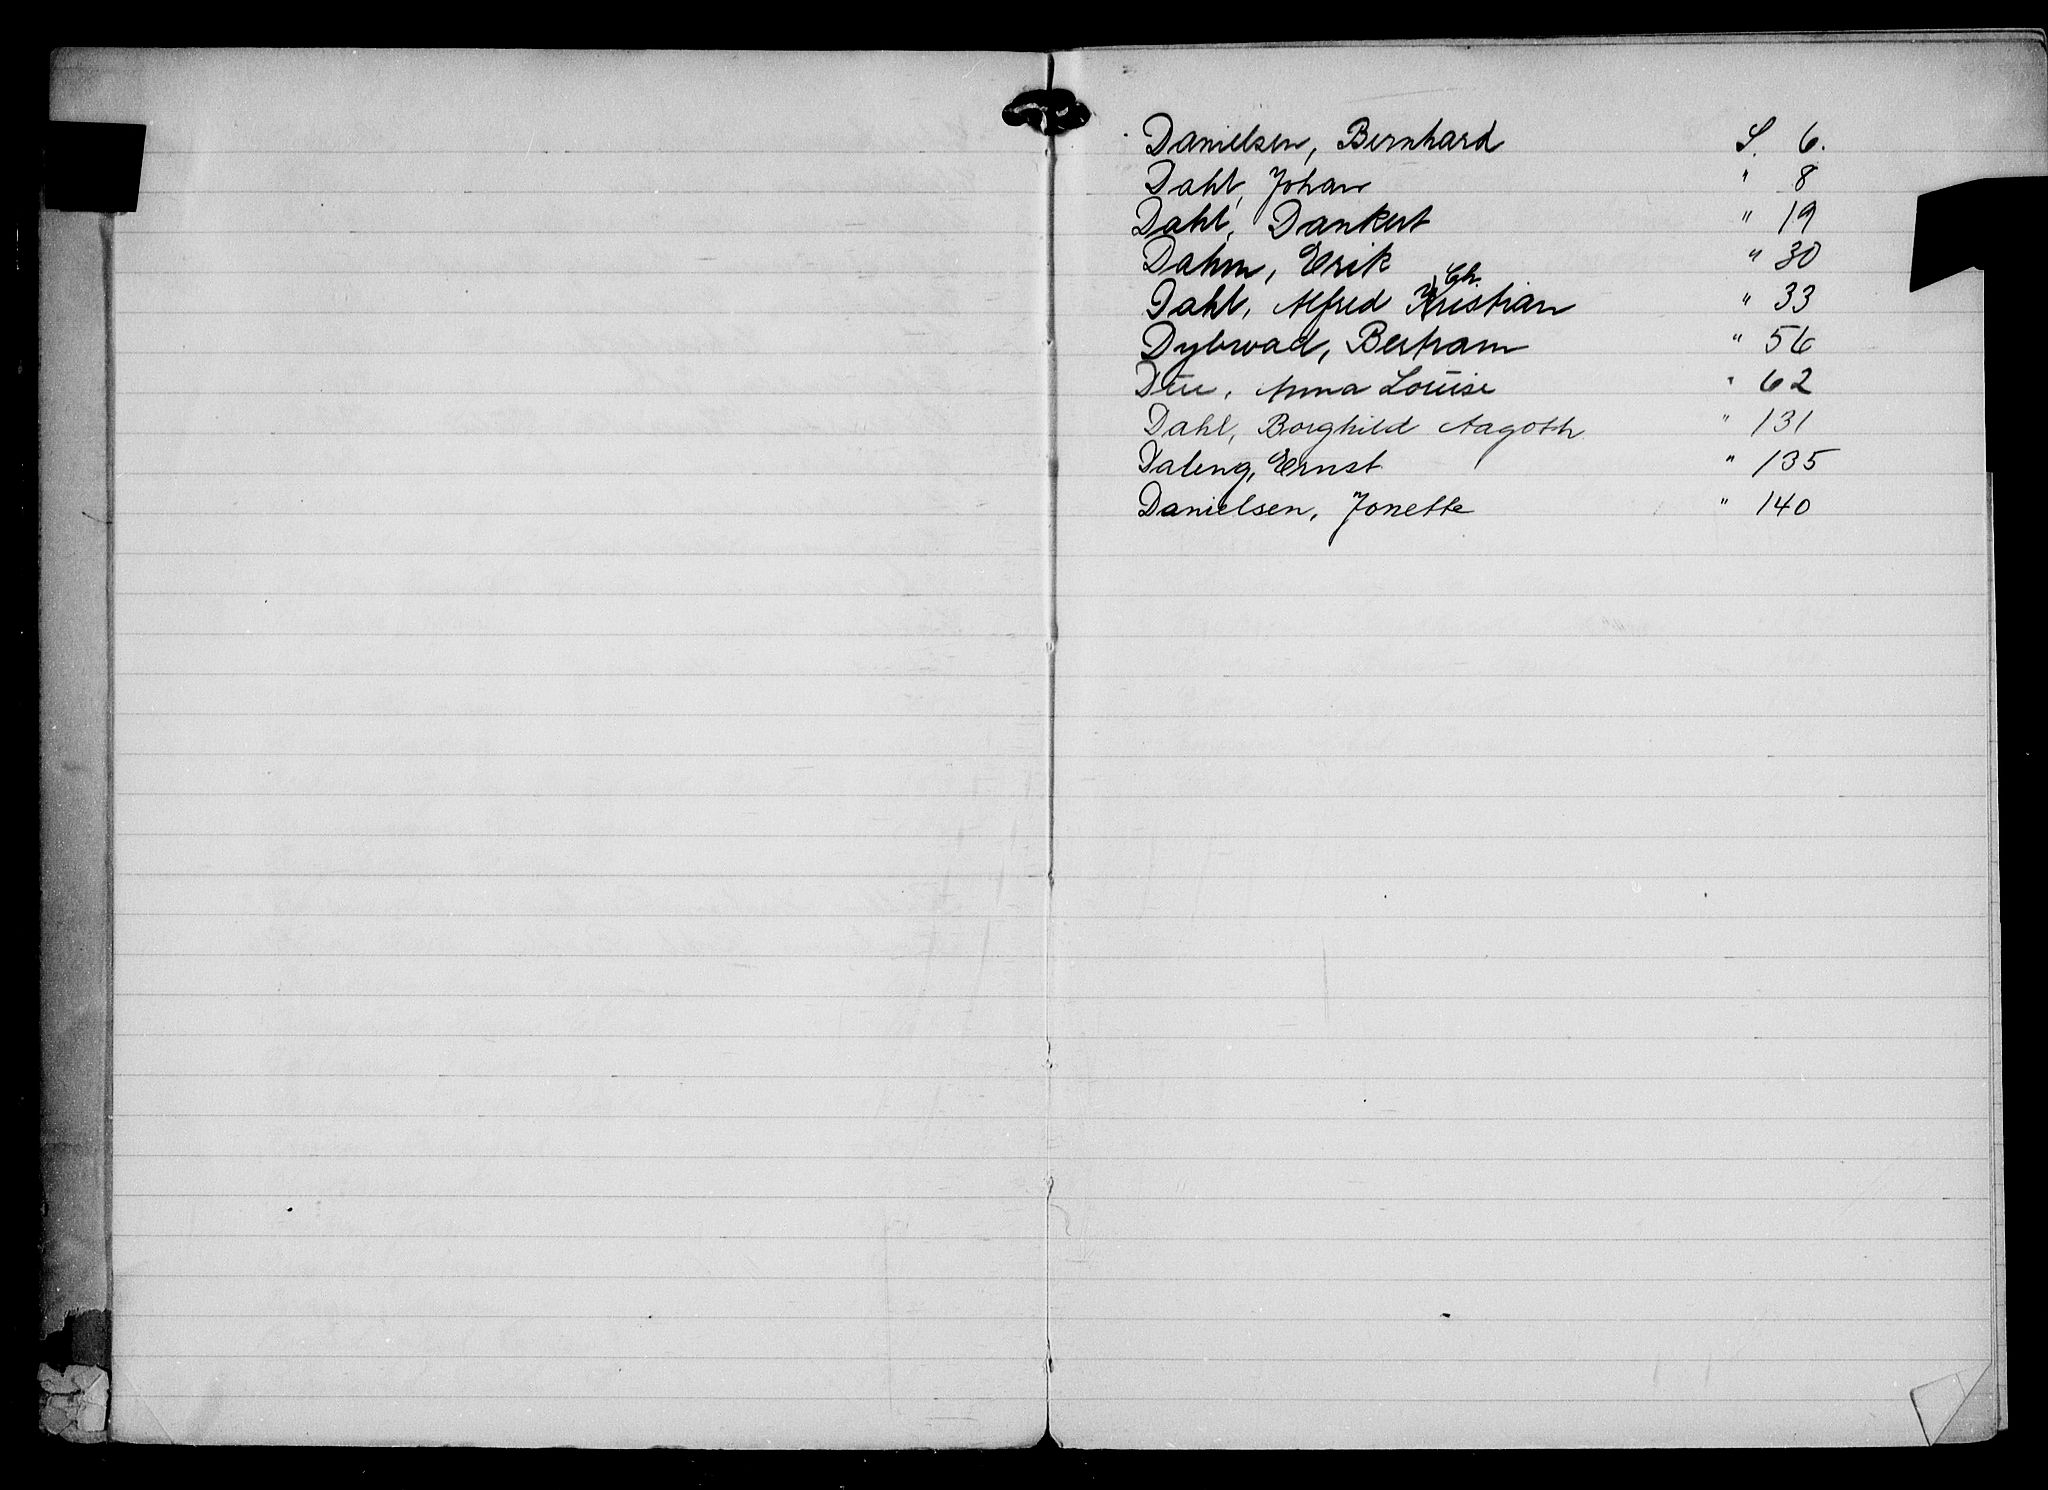 Danielsen, Bernhard S. 6.
Dahl, Johan " 8
Dahl, Dankert " 19
Dahm, Erik " 30
Ch.
Dahl, Alfred Kristian " 33
Dybwad, Bertram " 56
Due, Anna Louise " 62
Dahl, Borghild Aagoth " 131
Daleng, Ernst " 135
Danielsen, Jonette " 140